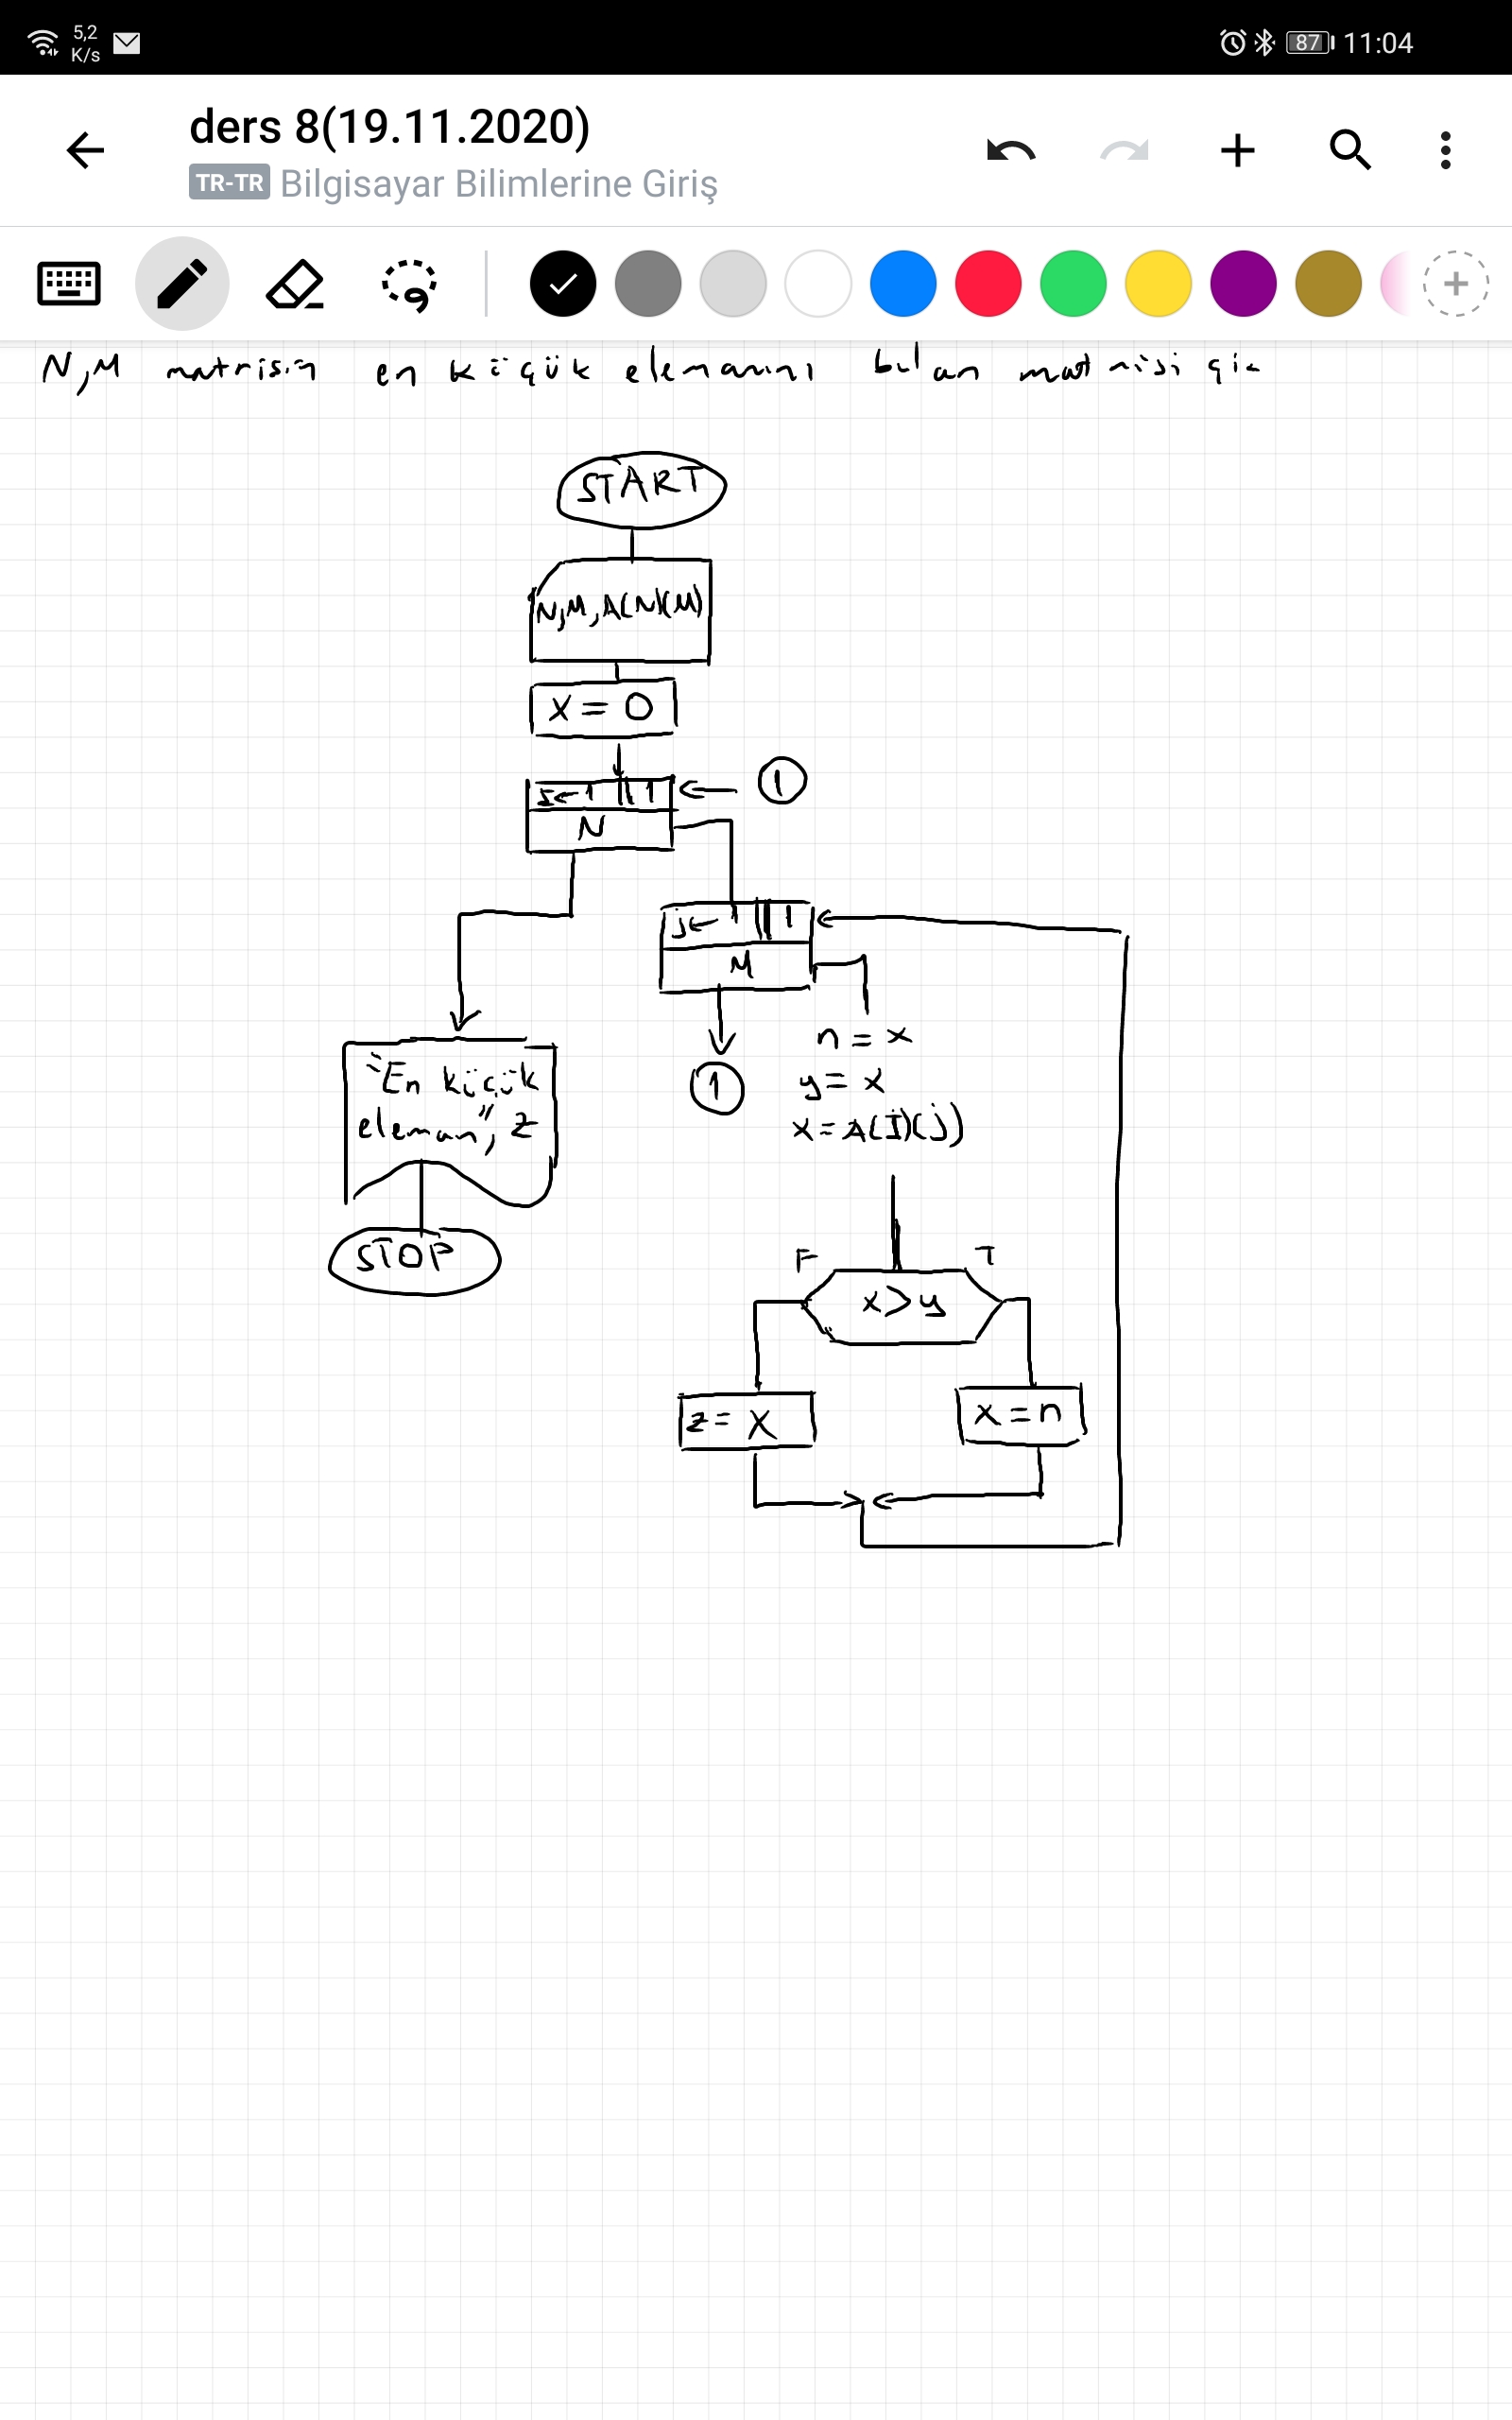 5,2
K/s
87 11:04
ders 8(19.11.2020)
TR-TR Bilgisayar Bilimlerine Giriş
N,M matrisin en küçük elemanını bulan matrisi çiz
START
N,M,A(N)(M)
x = 0
1
I← 1 1
N
j← 1 1
M
n = x
y = x
x = A(I)(j)
1
"En küçük
eleman", z
STOP
F T
x>y
z = x
x = n